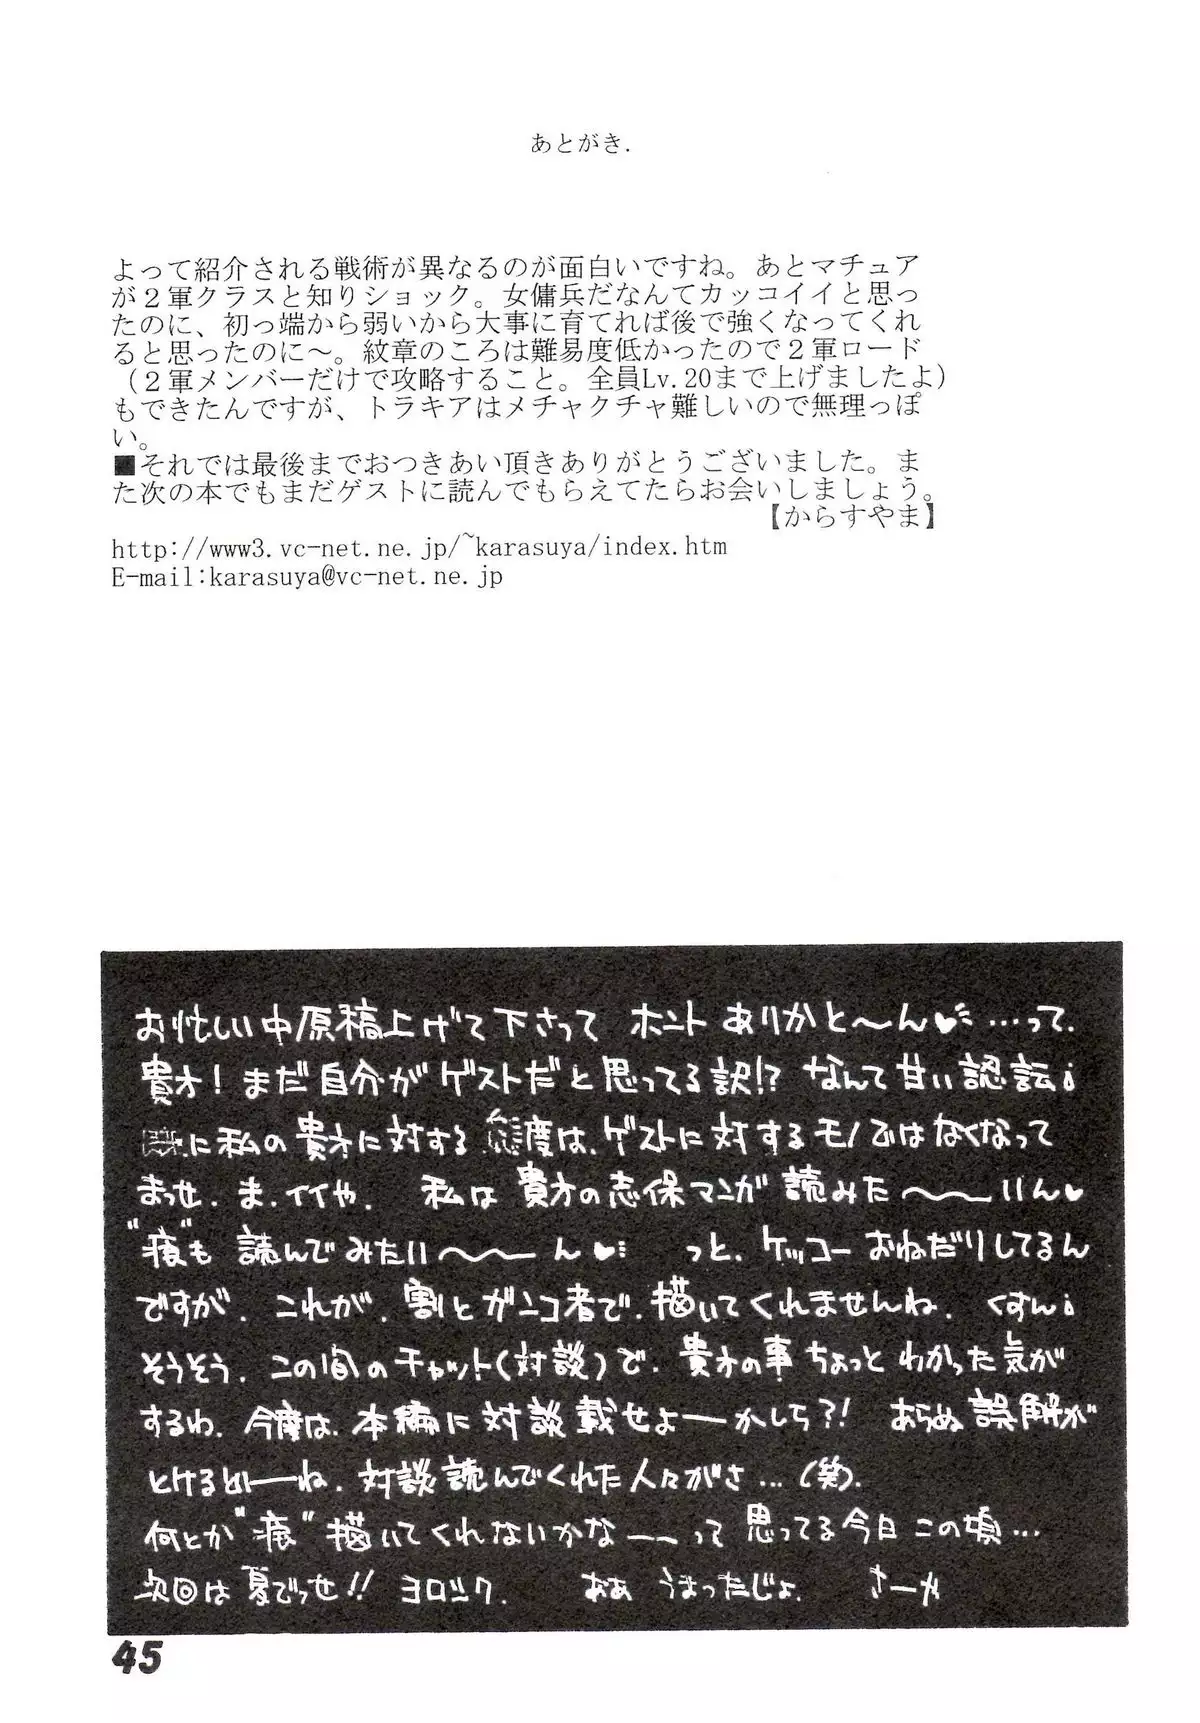 あとがき.
よって紹介される戦術が異なるのが面白いですね。あとマチュア
が２軍クラスと知りショック。女傭兵だなんてカッコイイと思っ
たのに、初っ端から弱いから大事に育てれば後で強くなってくれ
ると思ったのに～。紋章のころは難易度低かったので２軍ロード
（２軍メンバーだけで攻略すること。全員Lv.20まで上げましたよ）
もできたんですが、トラキアはメチャクチャ難しいので無理っぽ
い。
■それでは最後までおつきあい頂きありがとうございました。ま
た次の本でもまだゲストに読んでもらえてたらお会いしましょう。
【からすやま】
http://www3.vc-net.ne.jp/~karasuya/index.htm
E-mail:karasuya@vc-net.ne.jp
お忙しい中原稿上げて下さって ホントありがと～ん♥…って.
貴方！まだ自分がゲストだと思ってる訳!? なんて甘い認
に私の貴方に対する態度は、ゲストに対するモノではなくなって
まっせ.ま.イイや. 私は貴方の志保マンガ読みた～～いん♥
"痕"も読んでみたい～～ん♥ っと、ケッコーおねだりしてるん
ですが.これが.割とガンコ者で.描いてくれませんね. くすん
そうそう.この間のチャット(対談)で.貴方の事ちょっとわかった気が
するね.今度は.本編に対談載せよーかしら?! あらぬ誤解が
とけるどーね.対談読んでくれた人々がさ…(笑).
何とか"痕"描いてくれないかなーって思ってる今日この頃…
次回は夏でっせ!! ヨロシク. おお うまったじょ. さーや
45